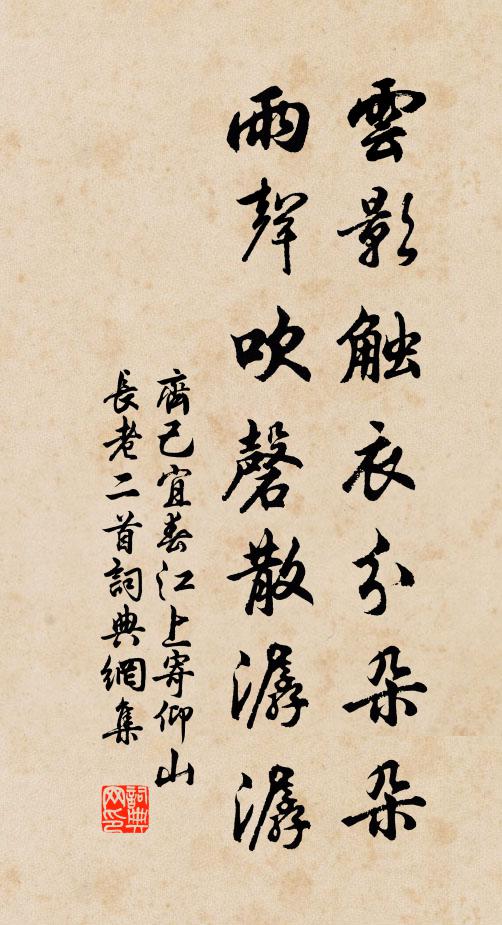 雲影触衣分朵朵
雨聲吹磬散潺潺
齊己宜春江上寄仰山
長老二首詞典網集
詞典网印